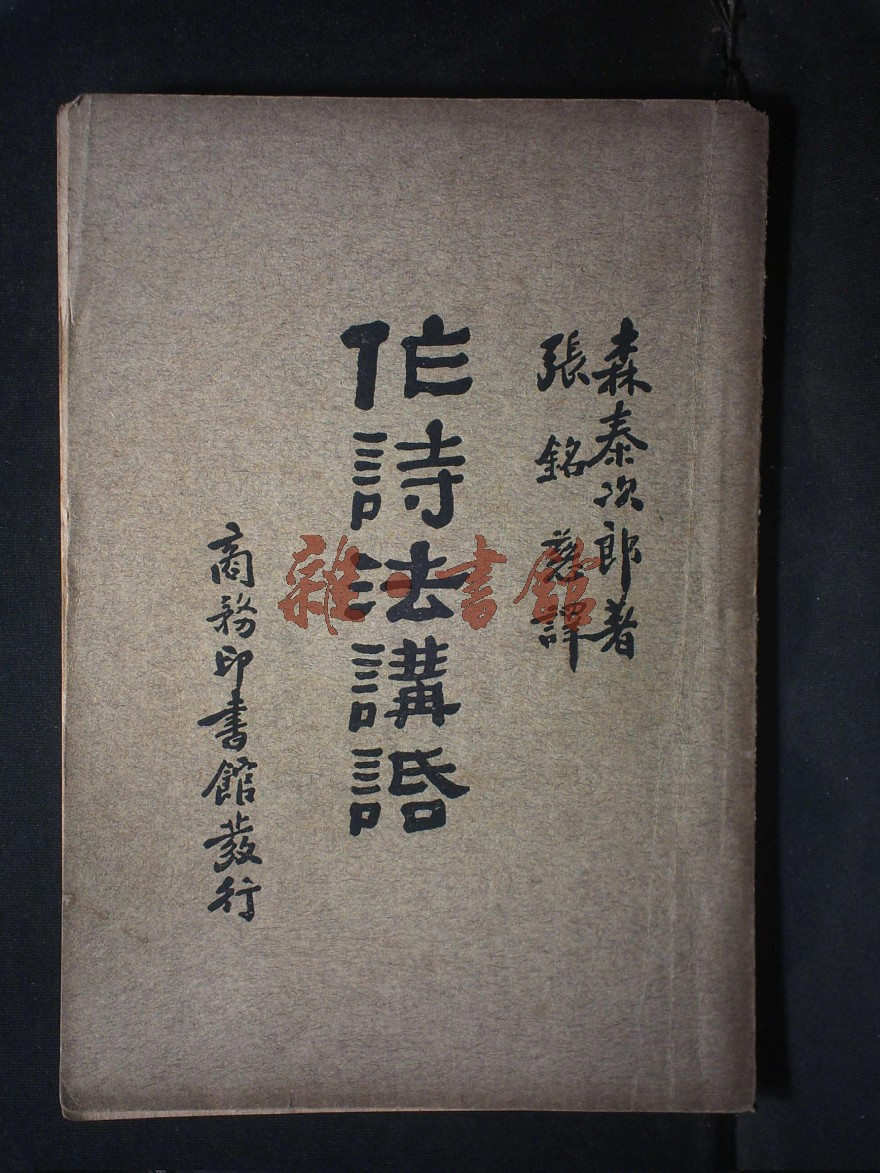 森泰次郎著
張銘慈譯
作詩法講話
商務印書館發行
雜·書館